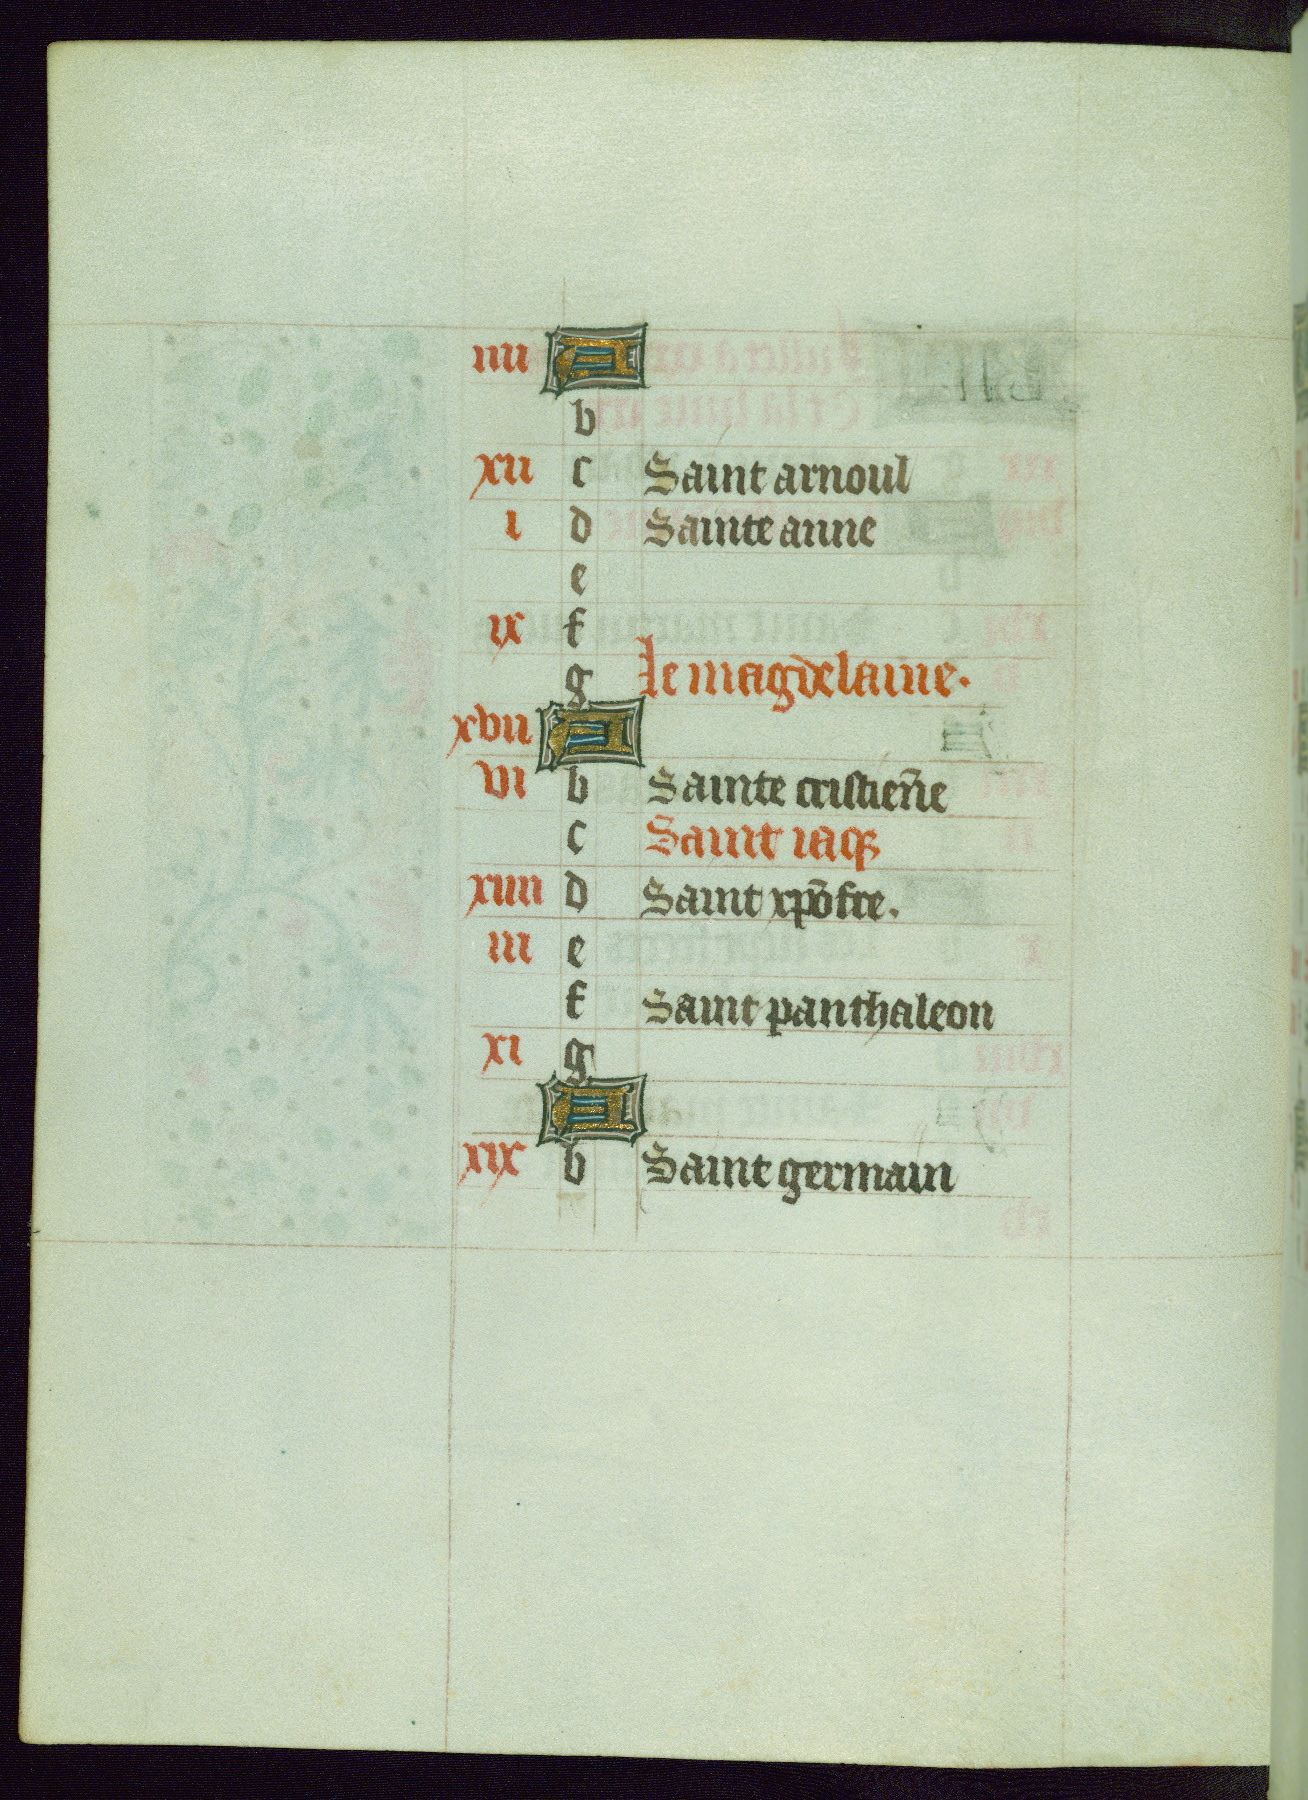 iiii A
b
xii c Saint arnoul
i d Sainte anne
e
ix f
g le magdelaine.
xvii A
vi b Sainte cristien̄e
c Saint iaqꝫ
xiiii d Saint xpōfre.
iii e
f Saint panthaleon
xi g
A
xix b Saint germain